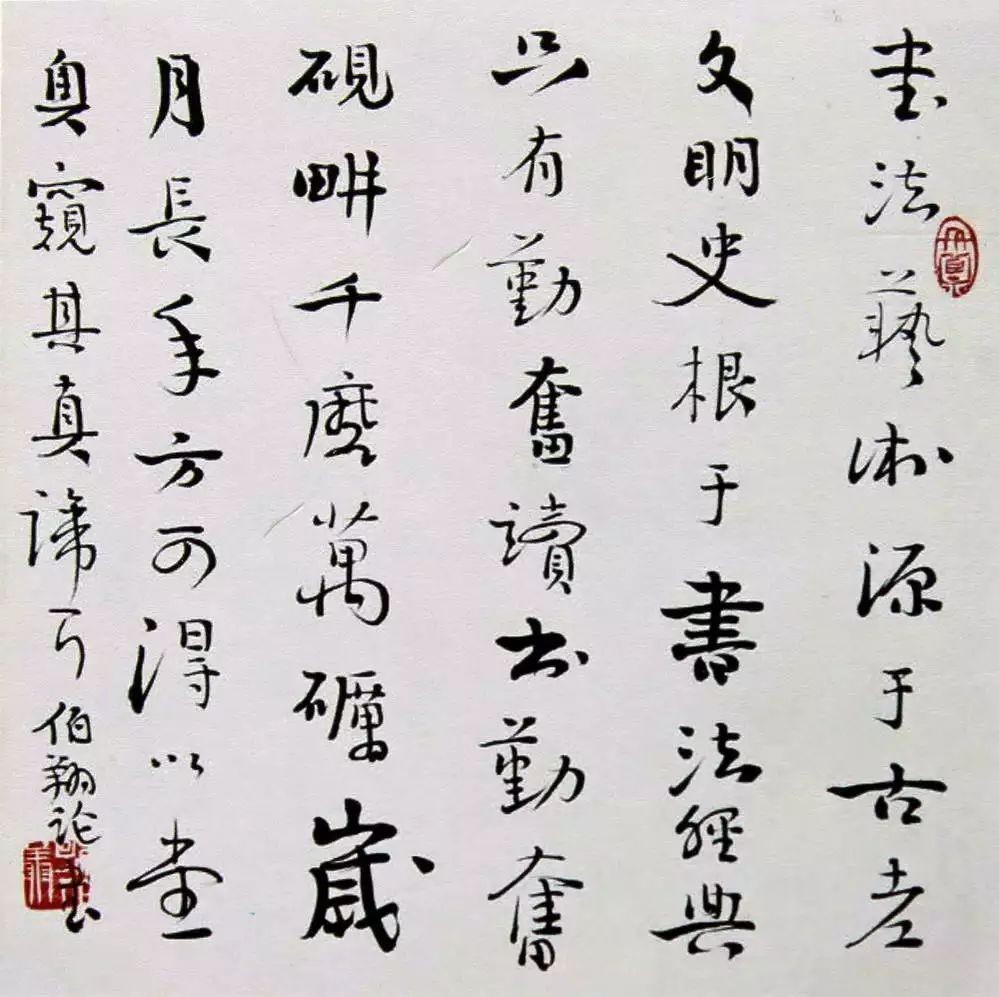 書法藝術源于古老
文明史根于書法經典
只有勤奮讀書勤奮
硯畊千磨萬礪歲
月長年方可得以堂
奥窺其真諦耳
伯翔論書